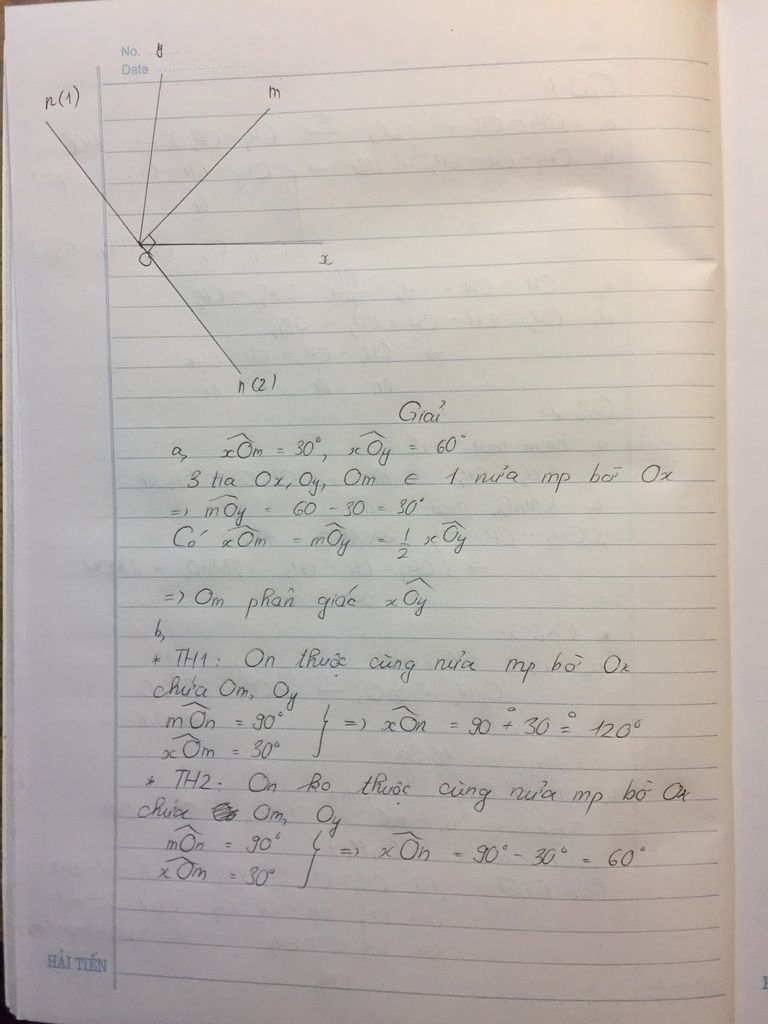 No. y
Date
n(1)
m
O
x
n(2)
Giải
a, xÔm = 30°, xÔy = 60°
3 tia Ox, Oy, Om ∈ 1 nửa mp bờ Ox
=> mÔy = 60 - 30 = 30°
Có xÔm = mÔy = 1/2 xÔy
=> Om phân giác xÔy
b,
* TH1: On thuộc cùng nửa mp bờ Ox
chứa Om, Oy
mÔn = 90° } => xÔn = 90° + 30° = 120°
xÔm = 30°
* TH2: On ko thuộc cùng nửa mp bờ Ox
chứa Om, Oy
mÔn = 90° } => xÔn = 90° - 30° = 60°
xÔm = 30°
HẢI TIẾN